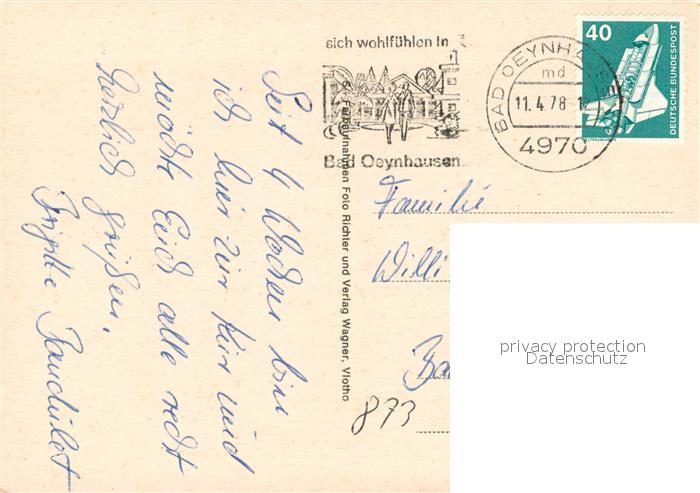 sich wohlfühlen in
Bad Oeynhausen
BAD OEYNH
md
11.4.78-1
4970
40
DEUTSCHE BUNDESPOST
Seit 4 Wochen bin
ich hier zur Kur und
möchte Euch alle recht
herzlich grüßen.
Brigitte
Farbaufnahmen Foto Richter und Verlag Wagner, Vlotho
Familie
Willi
Ba
873
privacy protection
Datenschutz